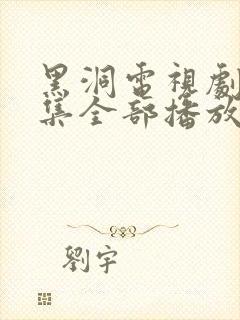 黑洞電視劇
集全部播放
劉宇